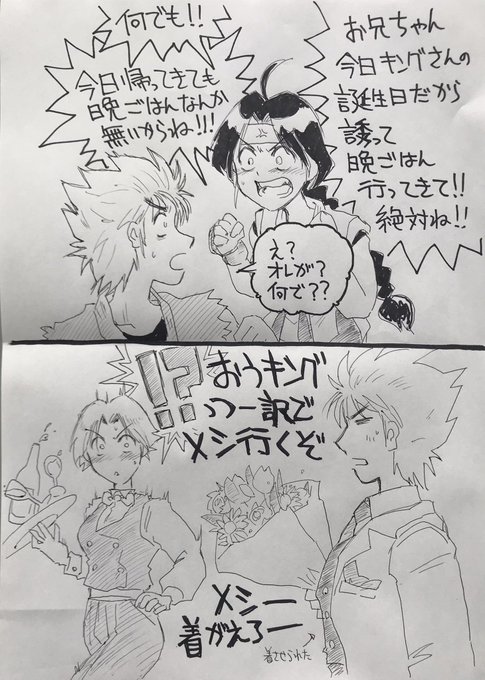 お兄ちゃん
今日キングさんの
誕生日だから
誘って
晩ごはん
行ってきて!!
絶対ね!!
え?
オレが?
何で??
何でも!!
今日帰ってきても
晩ごはんなんか
無いからね!!!
!?
おうキング
つー訳で
メシ行くぞ
メシー
着がえろー
着させられた